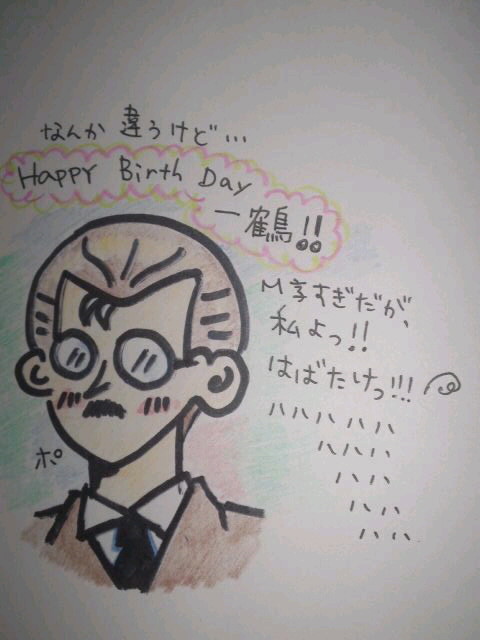 なんか違うけど…
Happy Birth Day
一鶴!!
M字すぎだが、
私よっ!!
はばたけっ!!!
ハハハハハ
ハハハ
ハハ
ハハ
ハハ
ポ